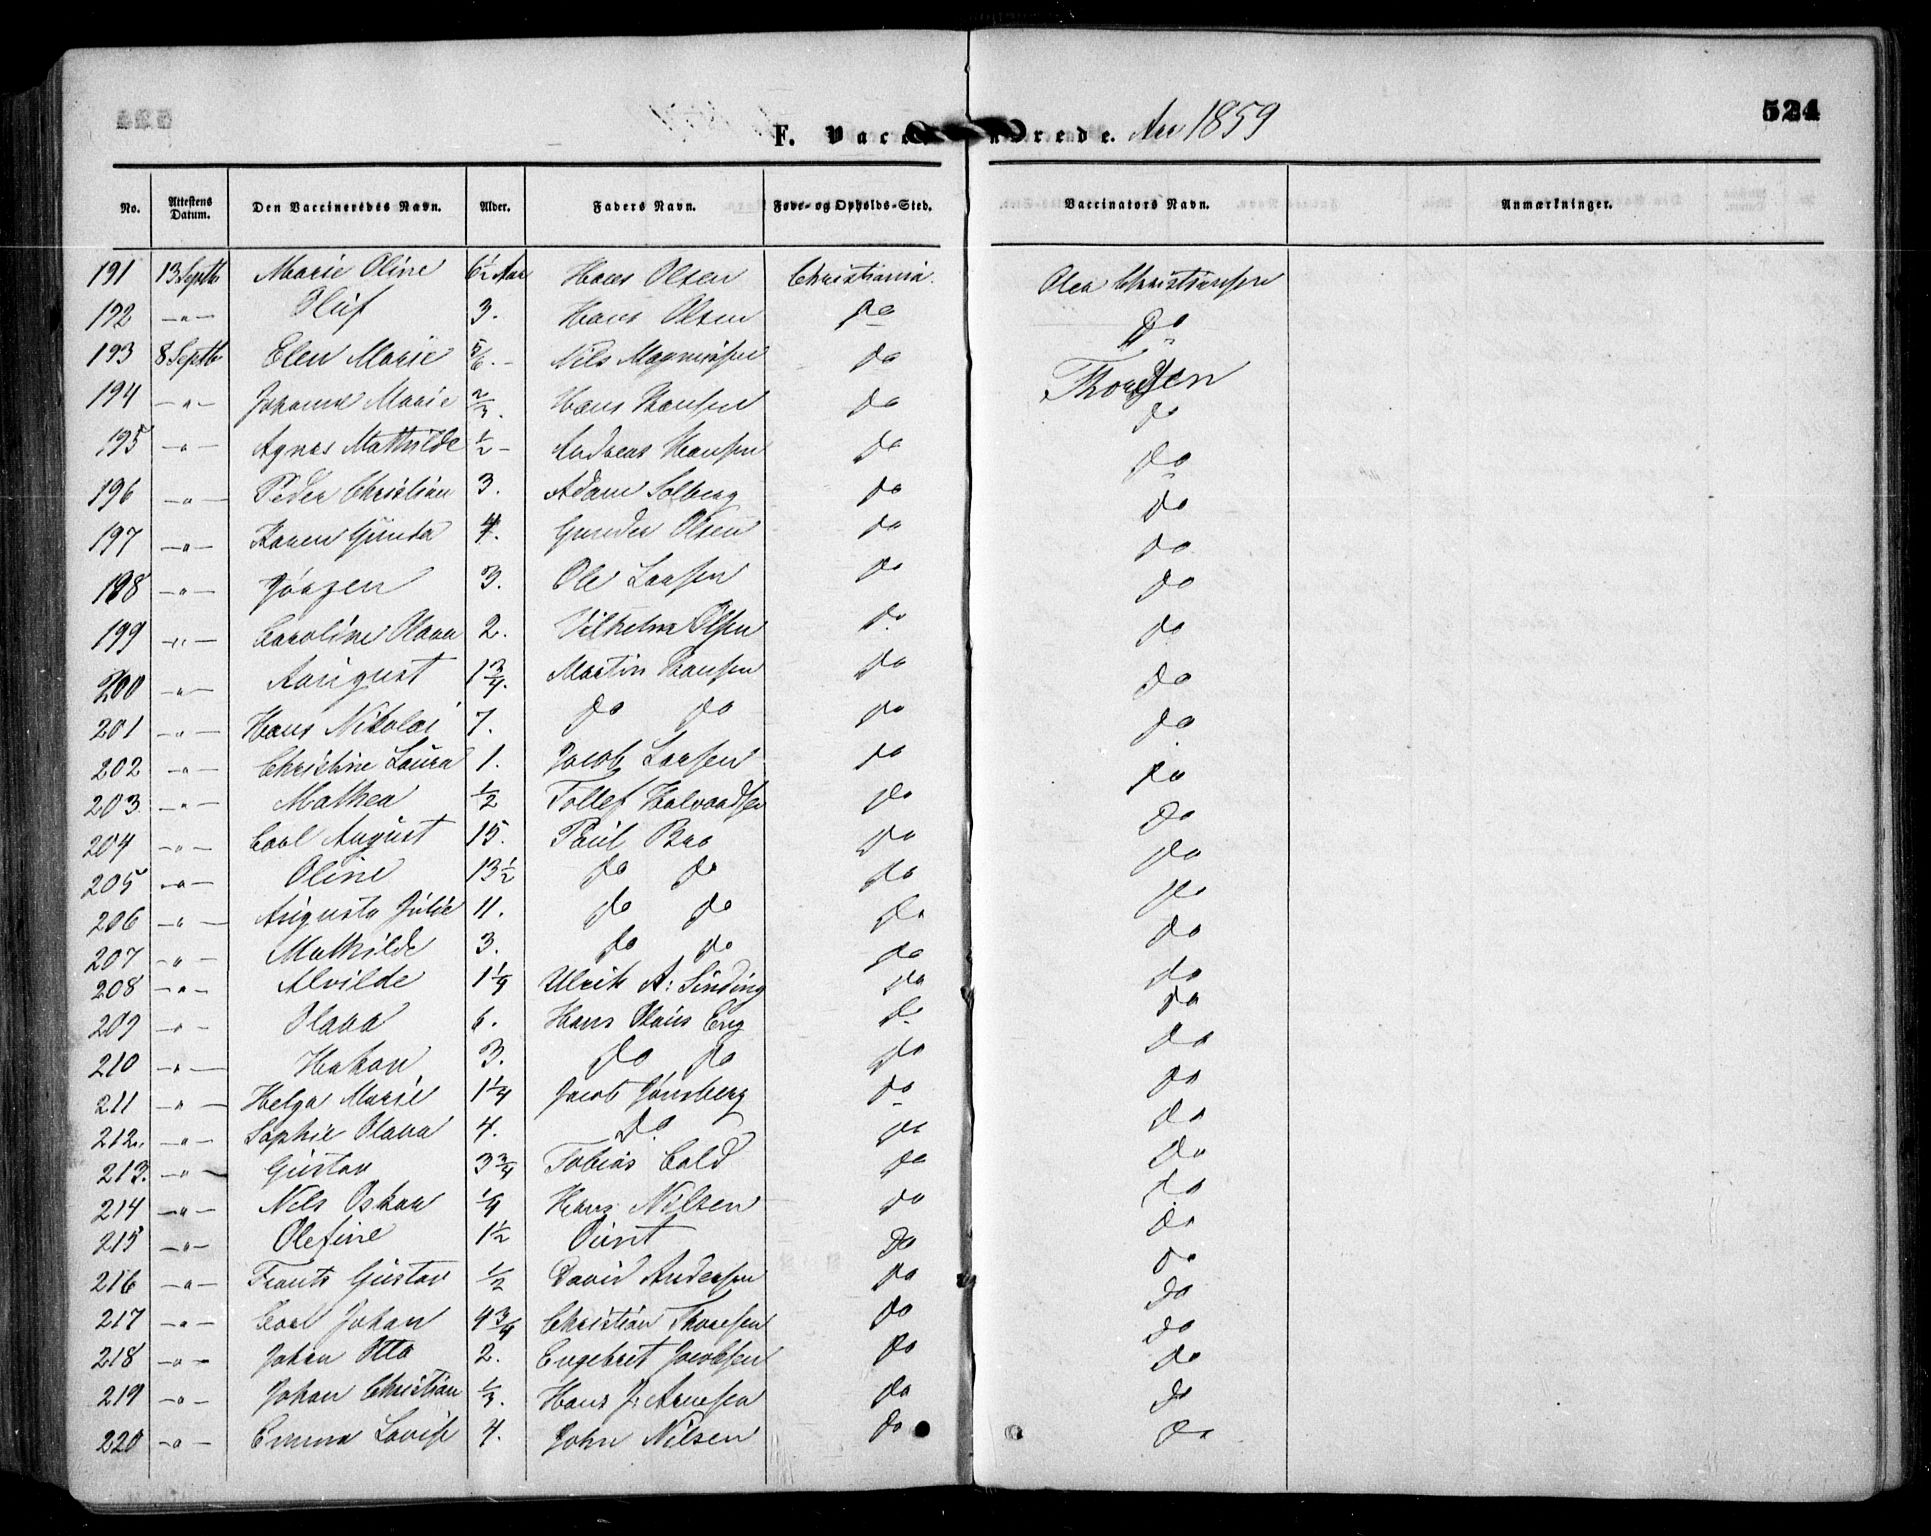 524
F. Vaccinerede. Aar 1859
No. Attestens Datum. Den Vaccineredes Navn. Alder. Faders Navn. Føde- og Opholds-Sted. Vaccinators Navn. Anmærkninger.
191 13 Septb Marie Oline 6½ Aar Hans Olsen Christiania. Olea Christiansen
192 -"- Oluf 3. Hans Olsen Do Do
193 8 Septb Elen Marie 5/6.- Nils Magnussen do Thoresen
194 -"- Johanne Marie 2/3. Hans Hansen do do
195 -"- Agnes Mathilde ½- Andreas Hansen do do
196 -"- Peder Christian 3. Adam Solberg do do
197 -"- Karen Gunda 4. Gunder Olsen do do
198 -"- Jörgen 3. Ole Larsen do do
199 -"- Caroline Olava 2. Vilhelm Olsen do do
200 -"- August 1¾. Martin Hansen do do
201 -"- Hans Nikolai 7. do do do do
202 -"- Christine Laura 1. Jacob Larsen do do
203 -"- Mathea ½ Tollef Halvordsen do do
204 -"- Carl August 15. Paul Bro do do
205 -"- Oline 13½ do do do do
206 -"- Augusta Julie 11. do do do do
207 -"- Mathilde 3. do do do do
208 -"- Alvilde 1¼ Ulrik A: Sinding do do
209 -"- Olava 6. Hans Olaus Eng do do
210 -"- Hakon 3. do do do do
211 -"- Helga Marie 1¼ Jacob Jönsberg do do
212. -"- Sophie Olava 4. Do do do
213. -"- Gustav 3¾ Tobias Cold do do
214 -"- Nils Oskar ¼ Hans Nilsen do do
215 -"- Olefine 1½ do do
216 -"- Frants Gustav ½ David Andersen do do
217 -"- Carl Johan 4¾ Christian Thoresen do do
218 -"- Johan Otto 2. Engebret Jacobsen do do
219 -"- Johan Christian ⅓. Hans J: Arnesen do do
220 -"- Emma Lovise 4. John Nilsen do do